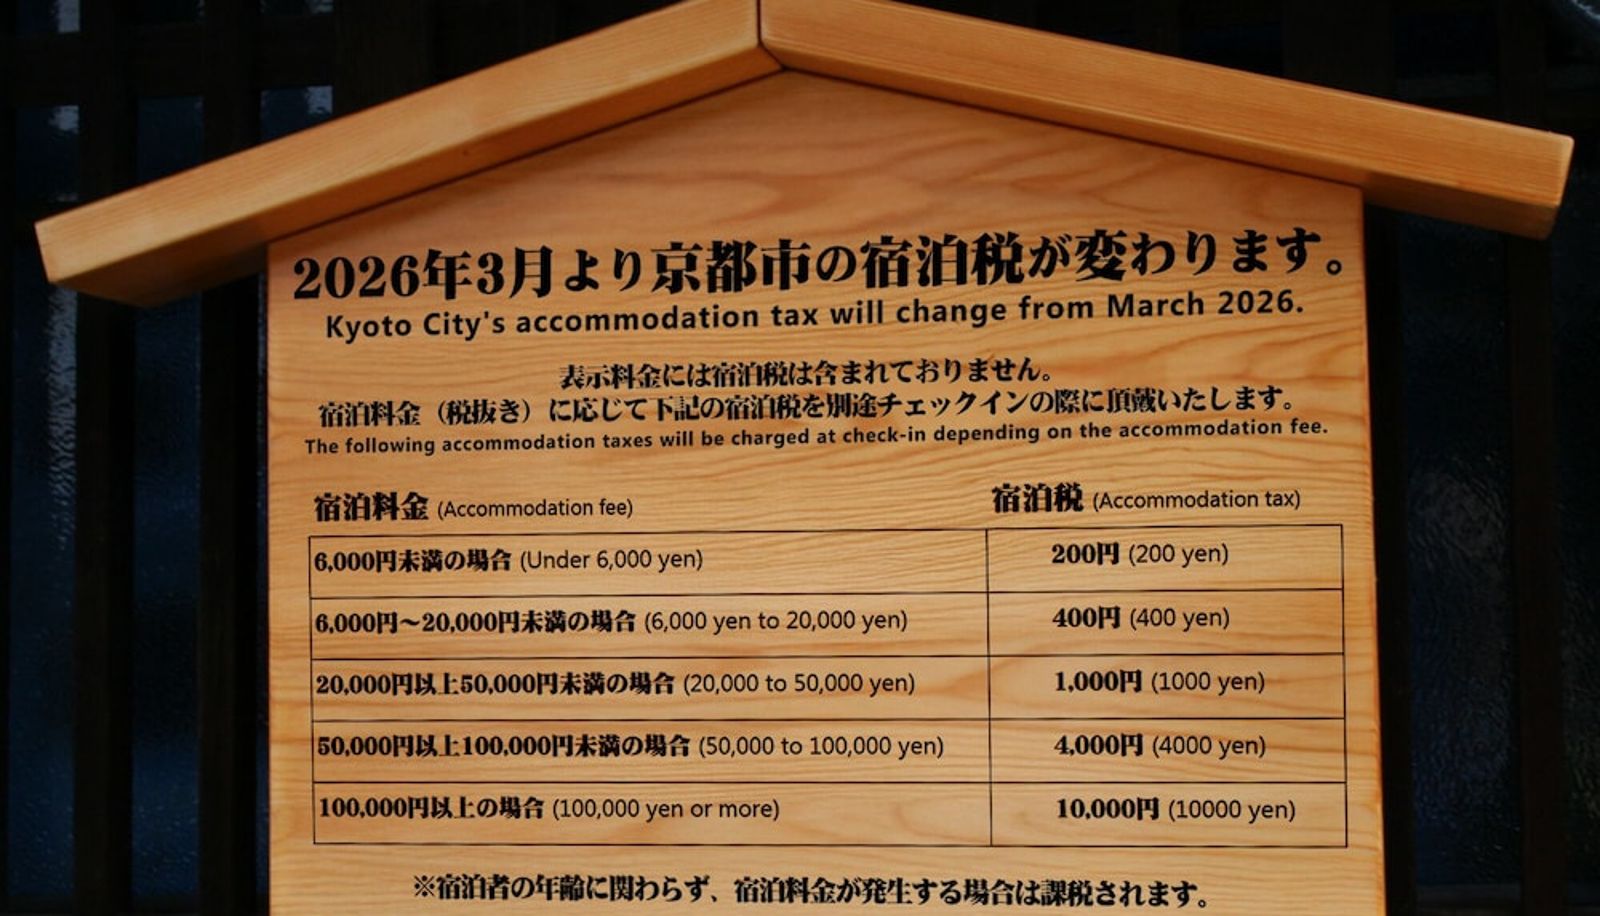 2026年3月より京都市の宿泊税が変わります。
Kyoto City's accommodation tax will change from March 2026.
表示料金には宿泊税は含まれておりません。
宿泊料金（税抜き）に応じて下記の宿泊税を別途チェックインの際に頂戴いたします。
The following accommodation taxes will be charged at check-in depending on the accommodation fee.
宿泊料金 (Accommodation fee) 宿泊税 (Accommodation tax)
6,000円未満の場合 (Under 6,000 yen) 200円 (200 yen)
6,000円〜20,000円未満の場合 (6,000 yen to 20,000 yen) 400円 (400 yen)
20,000円以上50,000円未満の場合 (20,000 to 50,000 yen) 1,000円 (1000 yen)
50,000円以上100,000円未満の場合 (50,000 to 100,000 yen) 4,000円 (4000 yen)
100,000円以上の場合 (100,000 yen or more) 10,000円 (10000 yen)
※宿泊者の年齢に関わらず、宿泊料金が発生する場合は課税されます。